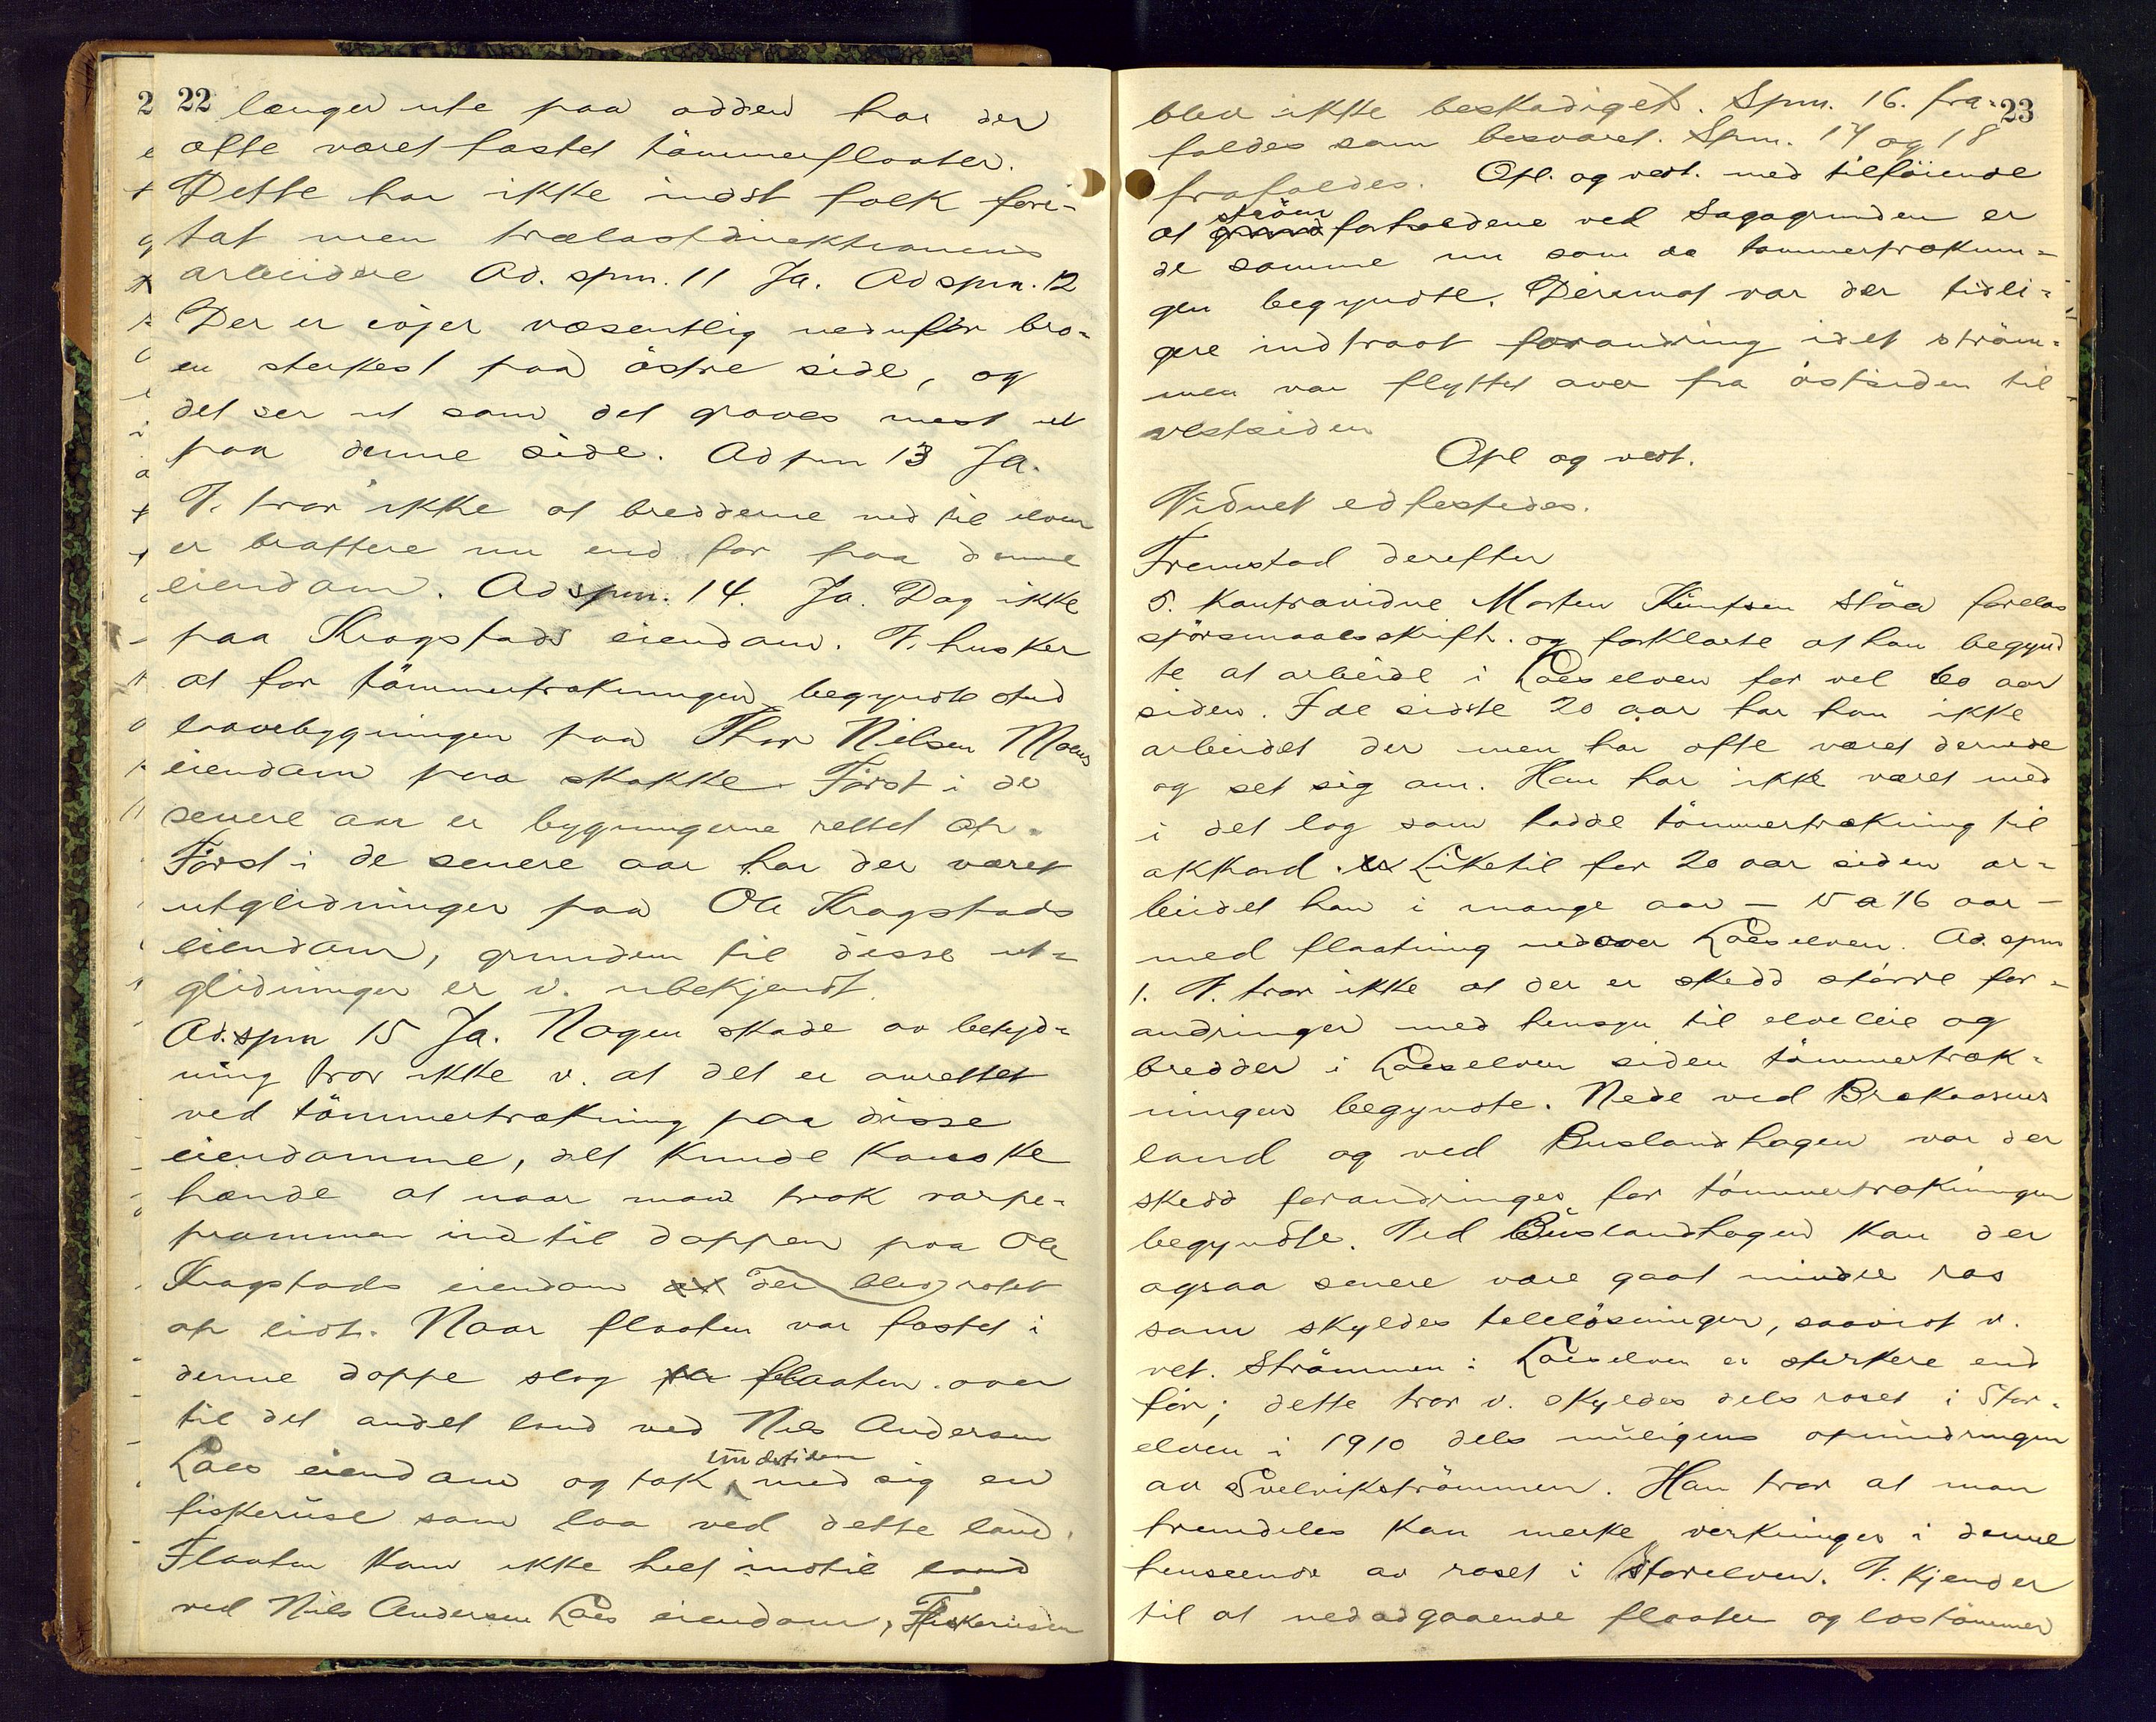 22 længer ute paa odden har der
ofte været fæstet tömmerflaater.
Dette har ikke indst folk fore-
tat men trælastdirektionens
arbeidere Ad. spm. 11 Ja. Ad spm. 12
Der er evjer væsentlig nedufor bro-
en sterkest paa östre side, og
det ser ut som det graves mest ut
paa denne side. Ad spm 13 Ja.
V. tror ikke at bredderne ned til elven
er brattere nu end for paa denne
eiendom. Ad spm. 14. Ja. Dog ikke
paa Kragstads eiendom. V. husker
at for tömmertrækningen begyndte stod
laavebygningen paa Thor Nilsen Moens
eiendom paa skakke. Först i de
senere aar er bygningerne rettet op.
Först i de senere aar har der været
utglidninger paa Ole Kragstads
eiendom, grunden til disse ut-
glidninger er v. ubekjendt.
Ad. spm 15 Ja. Nogen skade av betyd-
ning tror ikke v. at det er anrettet
ved tömmertrækning paa disse
eiendomme, det kunde kanske
hænde at naar man trak varpe-
prammen ind til doppen paa Ole
Kragstads eiendom at der blev rotet
op lidt. Naar flaaten var fæstet i
denne doppe slog flaaten over
til det andet land ved Nils Andersen
Laes eiendom og tok undertiden med sig en
fiskeruse som laa ved dette land.
Flaaten kom ikke helt indtil land
ved Nils Andersen Laes eiendom, Fiskerusen
23
blev ikke beskadiget. Spm. 16. fra-
faldes som besvaret. Spm. 17 og 18
frafaldes. Opl. og vedt. med tilföiende
at ström forholdene ved Sagagrunden er
de samme nu som da tømmertræknin-
gen begyndte. Derimot var der tidli-
gere indtraat forandring idet ström-
men var flyttet over fra östsiden til
vestsiden
Opl og vedt.
Vidnet edfestedes.
Fremstod derefter
5. Kontravidne Morten Knutsen Stöa forelæs
spörsmaalsskrift. og forklarte at han begynd
te at arbeide i Loeselven for vel 60 aar
siden. I de sidste 20 aar har han ikke
arbeidet der men har ofte været dernede
og set sig om. Han har ikke været med
i det lag som hadde tömmertrækning til
akkord. Liketil for 20 aar siden ar-
beidet han i mange aar - 15 a 16 aar -
med flaatning nedover Loeselven. Ad. spm
1. V. tror ikke at der er skedd större for-
andringer med hensyn til elveleie og
bredder i Loeselven siden tömmertræk-
ningen begyndte. Nede ved Brekaasens
land og ved Buslandhagen var der
skedd forandringer for tömmertrækningen
begyndte. Ved Buslandhagen kan der
ogsaa senere være gaat mindre ras
som skyldes telelösninger, saavidt v.
vet. Strömmen i Loeselven er sterkere end
för; dette tror v. skyldes dels raset i Stor-
elven i 1910 dels muligens opmudringen
av Svelvikströmmen. Han tror at man
fremdeles kan merke virkninger i denne
henseende av raset i Storelven. V. kjender
til at nedadgaaende flaater og löstömmer